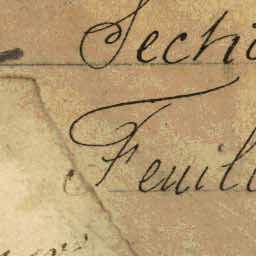 Secti
Feuill